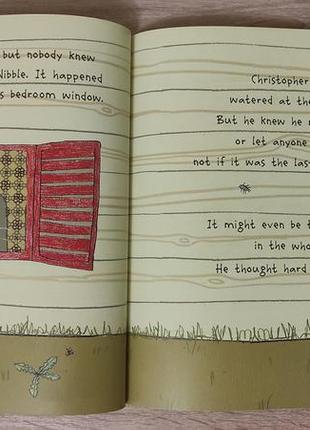 but nobody knew
Nibble. It happened
s bedroom window.
Christopher
watered at the
But he knew he m
or let anyone
not if it was the las
It might even be t
in the who
He thought hard